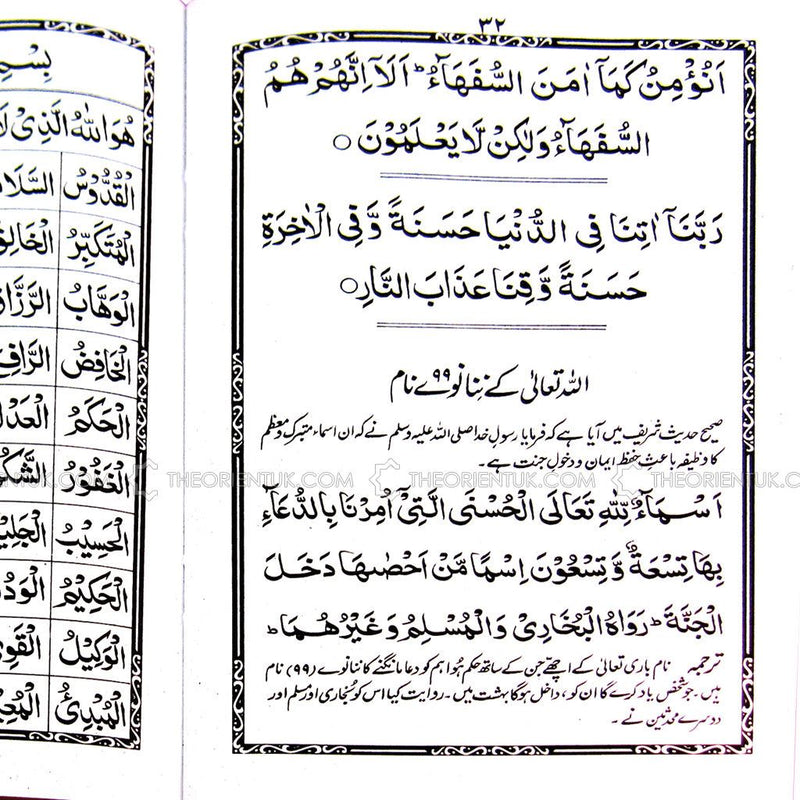 ۳۲
اَنُؤْمِنُ كَمَآ اٰمَنَ السُّفَهَآءُ ؕ اَلَآ اِنَّهُمْ هُمُ
السُّفَهَآءُ وَلٰكِنْ لَّا يَعْلَمُوْنَ ○
رَبَّنَآ اٰتِنَا فِى الدُّنْيَا حَسَنَةً وَّ فِى الْاٰخِرَةِ
حَسَنَةً وَّقِنَا عَذَابَ النَّارِ ○
اللہ تعالیٰ کے ننانوے ۹۹ نام
صحیح حدیث شریف میں آیا ہے کہ فرمایا رسول خدا صلی اللہ علیہ وسلم نے کہ ان اسماء متبرک و معظم
کا وظیفہ باعثِ حفظِ ایمان و دخولِ جنت ہے۔
THEORIENTUK.COM THEORIENTUK.COM THEORIENTUK.COM
اَسْمَآءُ لِلّٰهِ تَعَالَى الْحُسْنَى الَّتِىْٓ اُمِرْنَا بِالدُّعَآءِ
بِهَا تِسْعَةٌ وَّ تِسْعُوْنَ اِسْمًا مَّنْ اَحْصٰىهَا دَخَلَ
الْجَنَّةَ ؕ رَوَاهُ الْبُخَارِى وَالْمُسْلِمُ وَ غَيْرُهُمَا ؕ
ترجمہ نام باری تعالیٰ کے اچھے جن کے ساتھ حکم ہوا ہم کو دعا مانگنے کا ننانوے (۹۹) نام
ہیں۔ جو شخص یاد کرے گا ان کو، داخل ہوگا بہشت میں۔ روایت کیا اس کو بخاری اور مسلم اور
دوسرے محدثین نے۔
بِسْمِ
هُوَ اللّٰهُ الَّذِىْ
الْقُدُّوْسُ
الْمُتَكَبِّرُ
الْوَهَّابُ
الْخَافِضُ
الْحَكَمُ
الْغَفُوْرُ
الْحَسِيْبُ
الْحَكِيْمُ
الْوَكِيْلُ
الْمُبْدِئُ